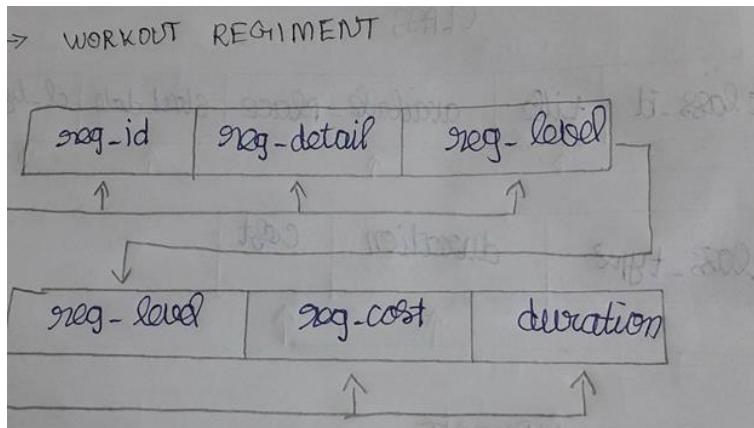 → WORKOUT REGIMENT
reg_id reg_detail reg_level
reg_level reg_cost duration